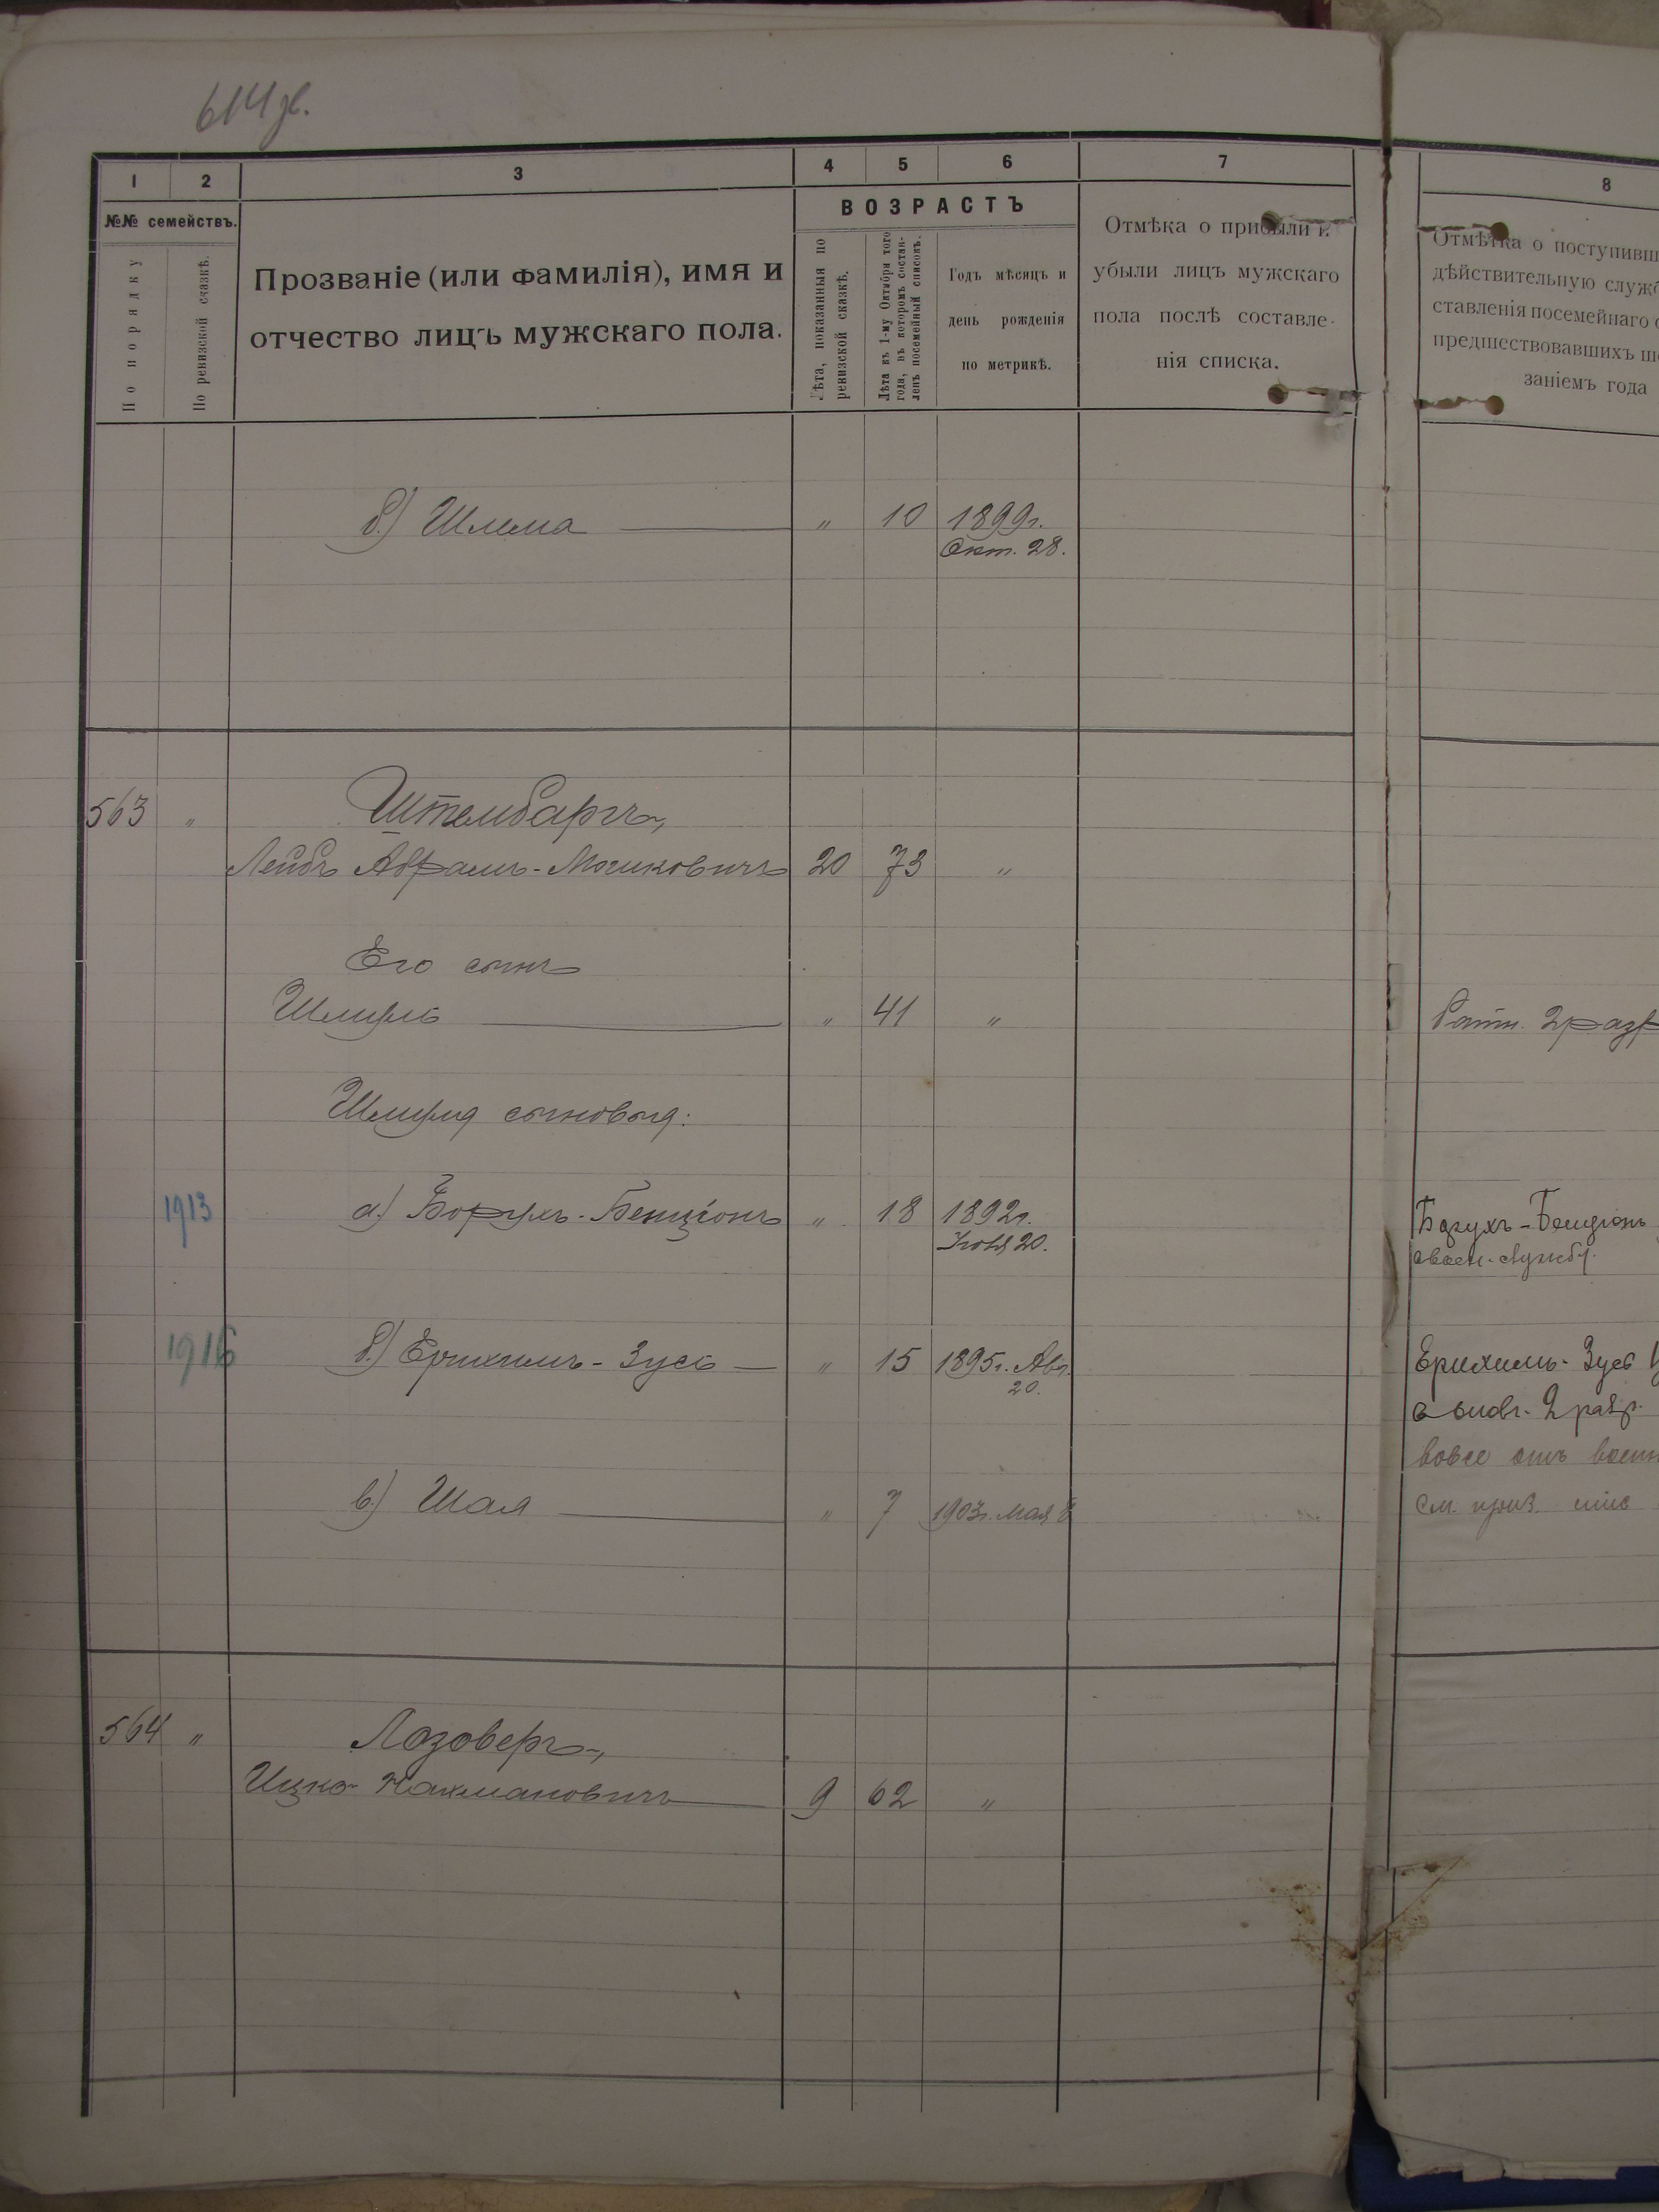 614
1 2 3 4 5 6 7 8
№№ семействъ.
По порядку
По ревизской сказкѣ.
Прозваніе (или фамилія), имя и
отчество лицъ мужскаго пола.
ВОЗРАСТЪ
Лѣта, показанныя по
ревизской сказкѣ.
Лѣта къ 1-му Октября того
года, въ которомъ состав-
ленъ посемейный списокъ.
Годъ мѣсяцъ и
день рожденія
по метрикѣ.
Отмѣка о прибыли и
убыли лицъ мужскаго
пола послѣ составле-
нія списка.
Отмѣтка о поступивш
дѣйствительную служб
ставленія посемейнаго с
предшествовавшихъ
заніемъ года
б.) Шлема — " 10 1899г.
Окт. 28.
563 " Штембаргъ,
Лейбъ Абрамъ-Мошковичъ 20 73 "
Его сынъ
Шмуль — " 41 " Ратн. 2 разр
Шмуля сыновья:
1913 а.) Борухъ-Бенціонъ " 18 1892г.
Іюля 20.
Борухъ-Бенціонъ
1916 б.) Ерихимъ-Зусь — " 15 1895г. Авг.
20.
Ерихимъ-Зусь
2 разр.
вовсе отъ воен
см. приз. спис
в.) Шая — " 7 1903г. Мая 8
564 " Лозоверъ,
Ицко Нахмановичъ — 9 62 "